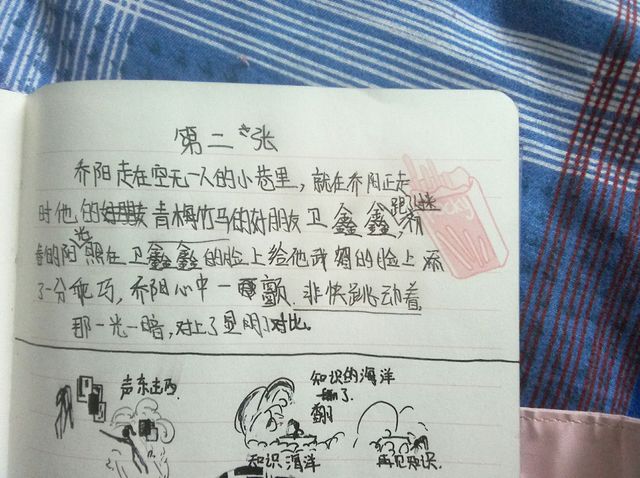 第二张
乔阳走在空无一人的小巷里,就在乔阳正走
时他的青梅竹马的好朋友卫鑫鑫,
的阳光照在卫鑫鑫的脸上给他的脸上添
了一分乖巧,乔阳心中一颤,非快跳动着
那一光一暗,对上了显明了对比。
声东击西
知识的海洋
翻了
知识海洋
再见知识